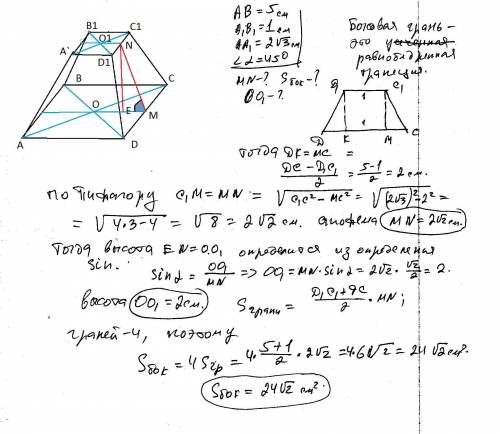 B1
C1
O1
N
A'
D1
B
C
O
E
M
A
D
AB = 5 см
A₁B₁ = 1 см
AA₁ = 2√3 см
∠α = 45°
MN - ? Sбок - ?
OO₁ - ?
Боковая грань -
это равнобедренная
трапеция.
D₁
C₁
1
1
D
K
M
C
Тогда DK = MC =
= (DC - D₁C₁)/2 = (5-1)/2 = 2 см.
По Пифагору C₁M = MN = √(C₁C² - MC²) = √((2√3)² - 2²) =
= √(4·3-4) = √8 = 2√2 см. апофема MN = 2√2 см.
Тогда высота EN = OO₁ определится из определения
sin.
sin α = OO₁/MN => OO₁ = MN·sin α = 2√2 · √2/2 = 2.
высота OO₁ = 2 см.
Sграни = (D₁C₁ + DC)/2 · MN;
граней - 4, поэтому
Sбок = 4Sгр = 4·(5+1)/2 · 2√2 = 4·6√2 = 24√2 см².
Sбок = 24√2 см².